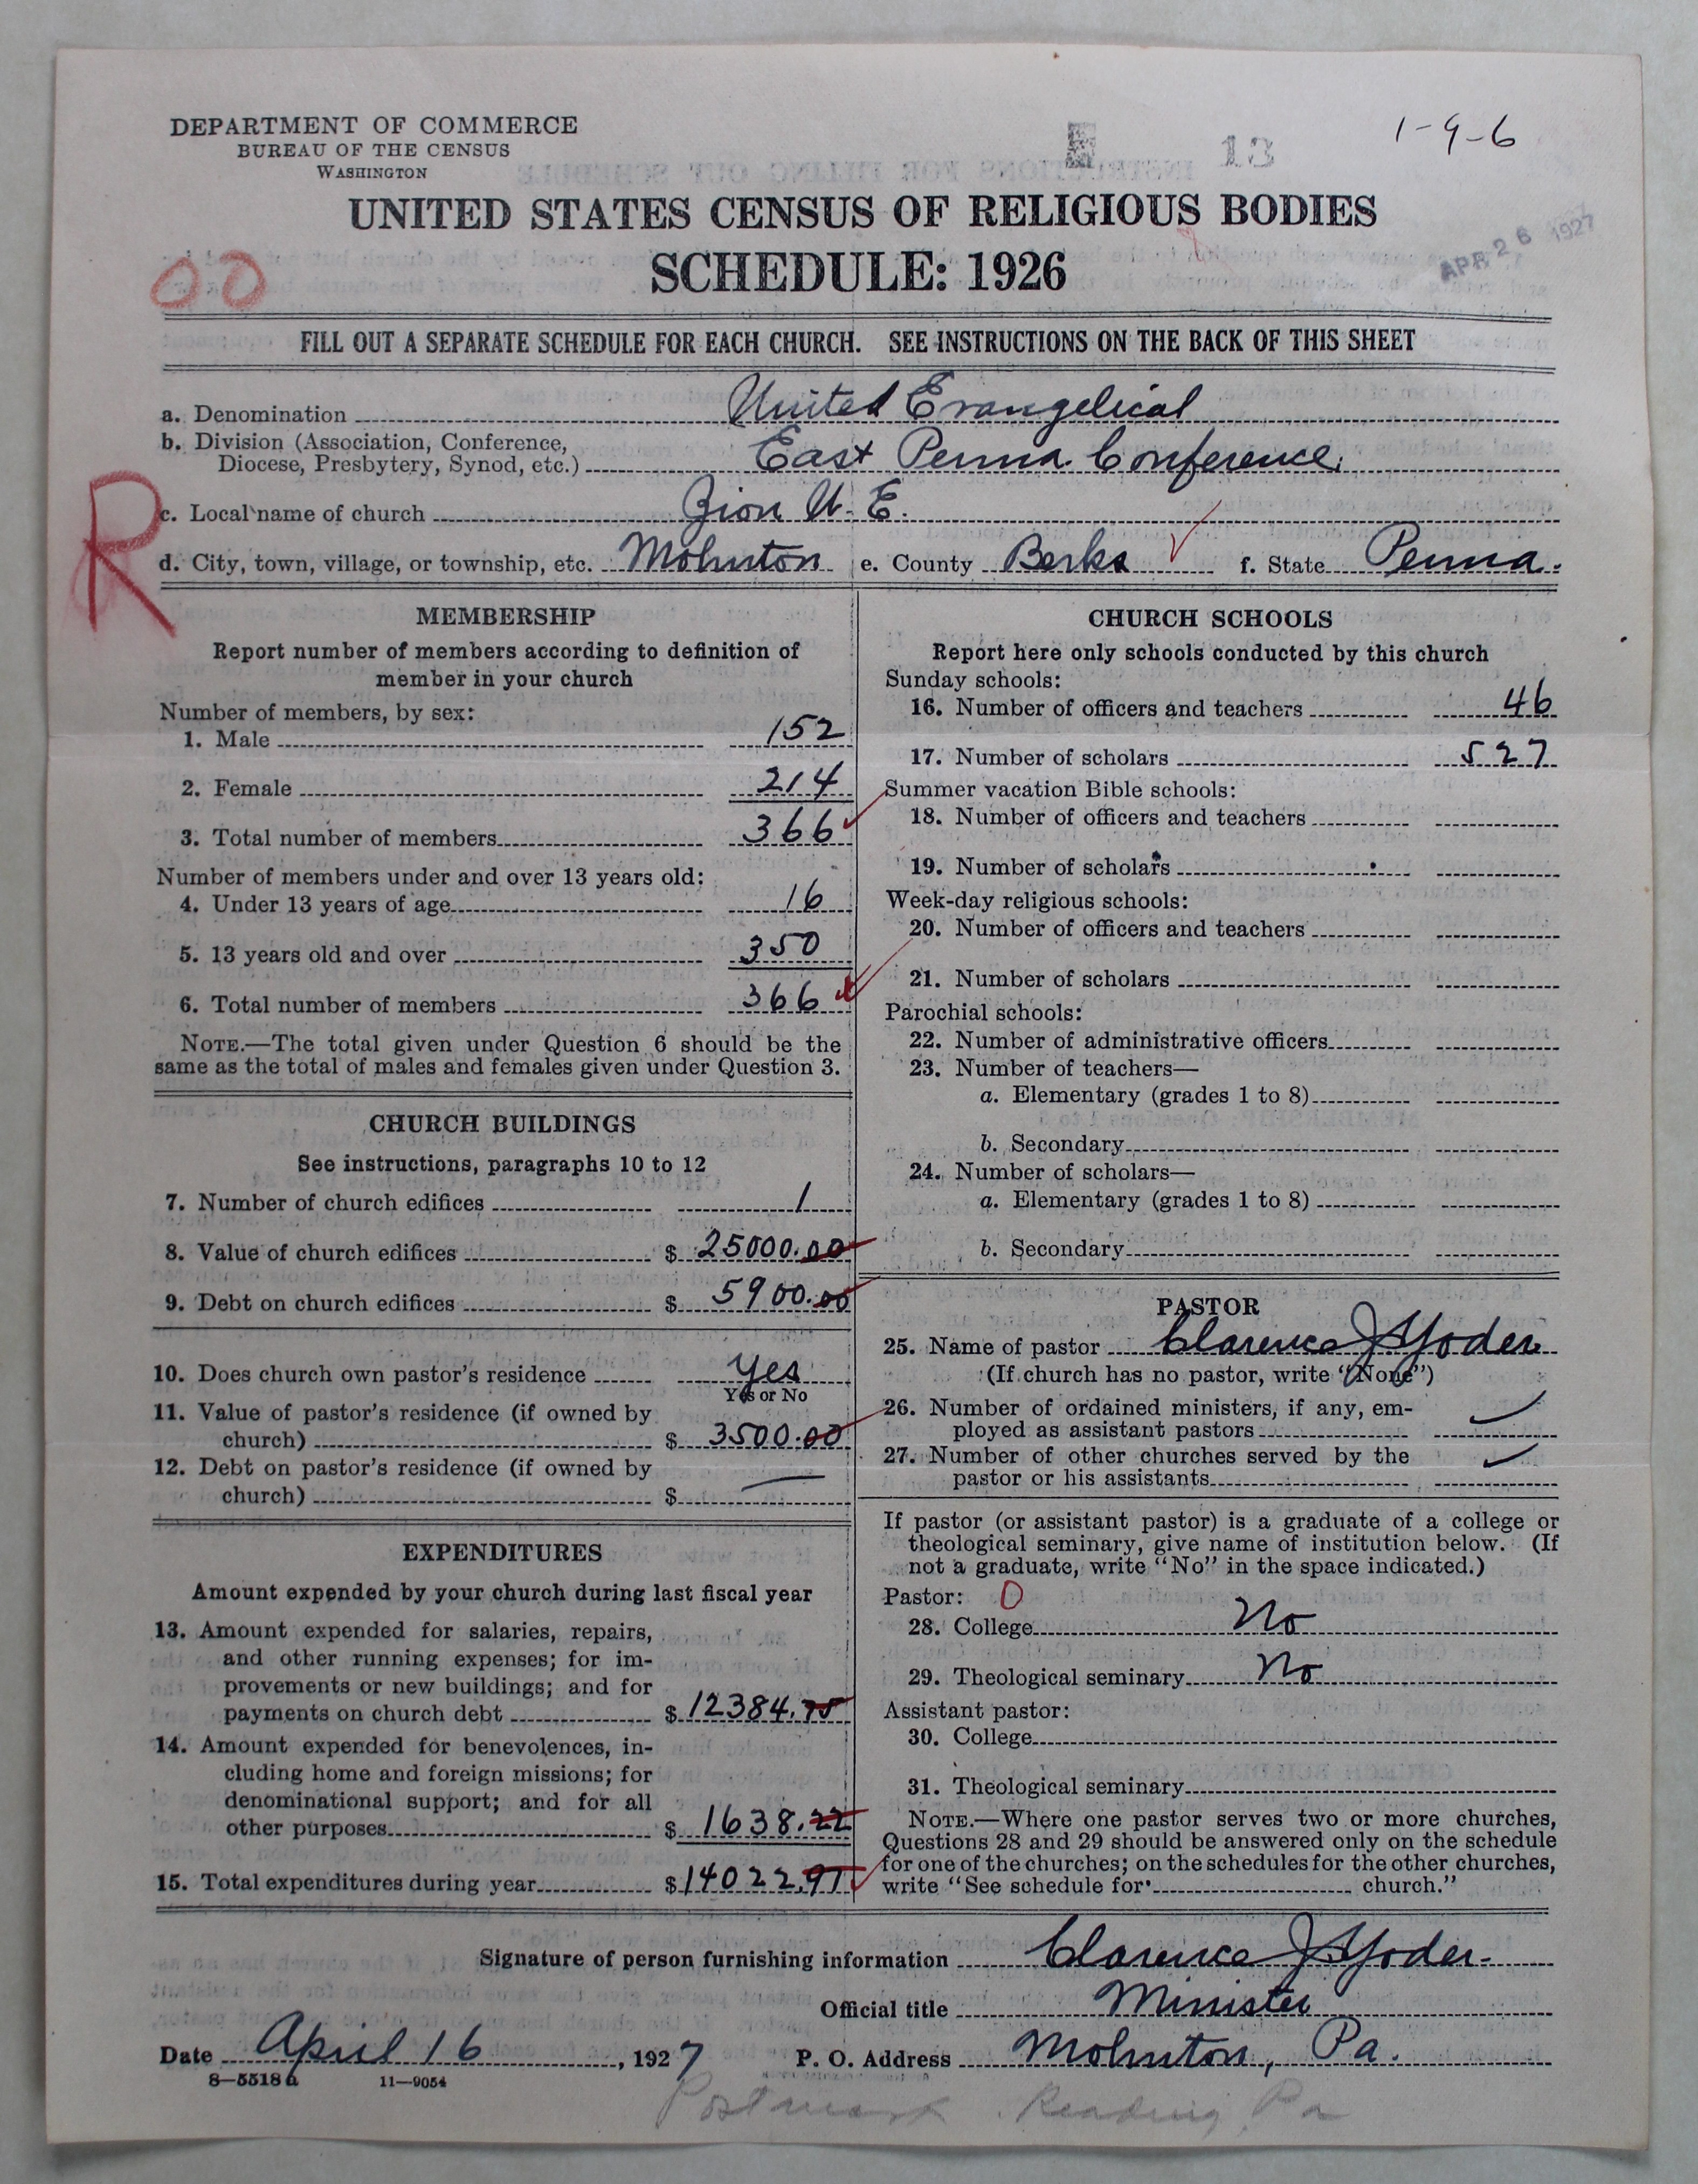 DEPARTMENT OF COMMERCE
BUREAU OF THE CENSUS
WASHINGTON
13
1-9-6
UNITED STATES CENSUS OF RELIGIOUS BODIES
SCHEDULE: 1926
APR 26 1927
00
FILL OUT A SEPARATE SCHEDULE FOR EACH CHURCH. SEE INSTRUCTIONS ON THE BACK OF THIS SHEET
a. Denomination United Evangelical
b. Division (Association, Conference,
Diocese, Presbytery, Synod, etc.) East Penna Conference.
R
c. Local name of church Zion U. E.
d. City, town, village, or township, etc. Mohnton e. County Berks f. State Penna.
MEMBERSHIP
Report number of members according to definition of
member in your church
Number of members, by sex:
1. Male 152
2. Female 214
3. Total number of members 366
Number of members under and over 13 years old:
4. Under 13 years of age 16
5. 13 years old and over 350
6. Total number of members 366
NOTE.—The total given under Question 6 should be the
same as the total of males and females given under Question 3.
CHURCH BUILDINGS
See instructions, paragraphs 10 to 12
7. Number of church edifices 1
8. Value of church edifices $ 25000.00
9. Debt on church edifices $ 5900.00
10. Does church own pastor's residence Yes
Yes or No
11. Value of pastor's residence (if owned by
church) $ 3500.00
12. Debt on pastor's residence (if owned by
church) $ —
EXPENDITURES
Amount expended by your church during last fiscal year
13. Amount expended for salaries, repairs,
and other running expenses; for im-
provements or new buildings; and for
payments on church debt $ 12384.75
14. Amount expended for benevolences, in-
cluding home and foreign missions; for
denominational support; and for all
other purposes $ 1638.22
15. Total expenditures during year $ 14022.97
CHURCH SCHOOLS
Report here only schools conducted by this church
Sunday schools:
16. Number of officers and teachers 46
17. Number of scholars 527
Summer vacation Bible schools:
18. Number of officers and teachers
19. Number of scholars
Week-day religious schools:
20. Number of officers and teachers
21. Number of scholars
Parochial schools:
22. Number of administrative officers
23. Number of teachers—
a. Elementary (grades 1 to 8)
b. Secondary
24. Number of scholars—
a. Elementary (grades 1 to 8)
b. Secondary
PASTOR
25. Name of pastor Clarence J Yoder
(If church has no pastor, write "None")
26. Number of ordained ministers, if any, em-
ployed as assistant pastors
27. Number of other churches served by the
pastor or his assistants
If pastor (or assistant pastor) is a graduate of a college or
theological seminary, give name of institution below. (If
not a graduate, write "No" in the space indicated.)
Pastor: 0
28. College No
29. Theological seminary No
Assistant pastor:
30. College
31. Theological seminary
NOTE.—Where one pastor serves two or more churches,
Questions 28 and 29 should be answered only on the schedule
for one of the churches; on the schedules for the other churches,
write "See schedule for church."
Signature of person furnishing information Clarence J Yoder
Official title Minister
Date April 16, 1927 P. O. Address Mohnton, Pa.
8—5518 a 11—9054
Postmark Reading Pa